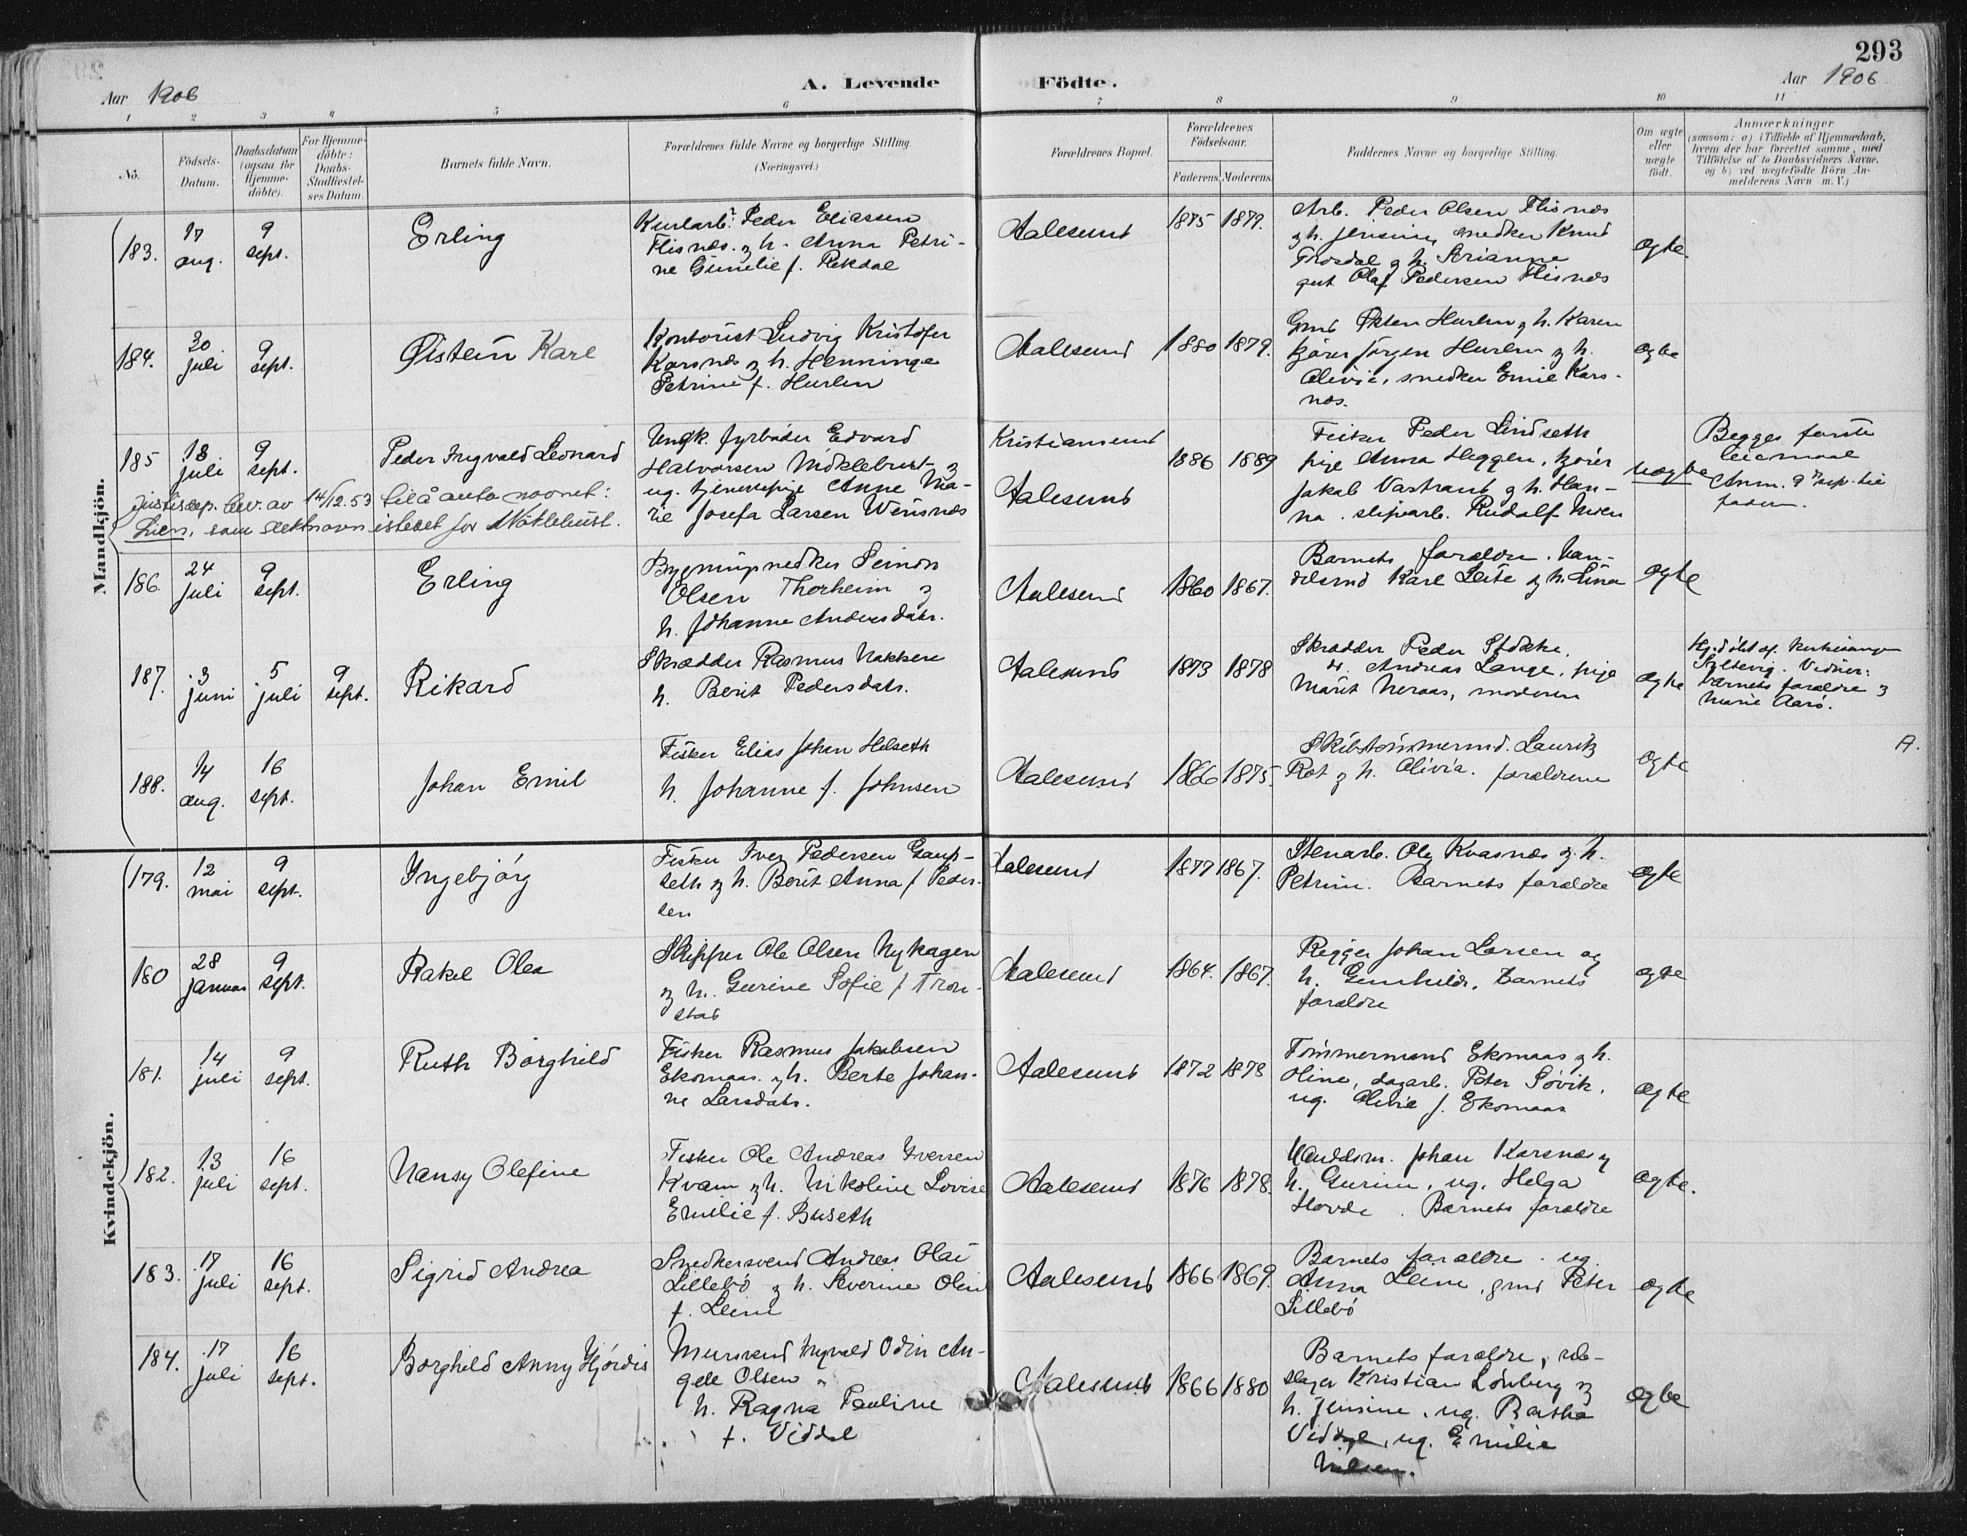 293
Aar 1906
A. Levende Födte.
Aar 1906
1 2 3 4 5 6 7 8 9 10 11
No.
Födsels-
Datum.
Daabsdatum
(ogsaa for
Hjemme-
döbte).
For Hjemme-
döbte:
Daabs-
Stadfæstel-
ses Datum.
Barnets fulde Navn.
Forældrenes fulde Navne og borgerlige Stilling.
(Næringsvei.)
Forældrenes Bopæl.
Forældrenes
Födselsaar.
Faderens. Moderens.
Faddernes Navne og borgerlige Stilling.
Om ægte
eller
uægte
födt.
Anmærkninger
(saasom: a) i Tilfælde af Hjemmedaab,
hvem der har forrettet samme, med
Tilföielse af to Daabsvidners Navne,
og b) ved uægtefödte Börn An-
melderens Navn m. V.)
Mandkjön.
183.
17
aug.
9
sept.
Erling
Peder Eliassen
Flisnæs. og h. Anna Petri-
ne Gunelie f. Rekdal
Aalesund
1875 1879.
Arb. Peder Olsen Flisnæs
og h. Jensine, snedker Knud
og h.
gut Olaf Pedersen Flisnæs
ægte.
184.
30
juli
9
sept.
Øistein Karl
Kontorist Ludvig Kristofer
Karsnæs og h. Henninge
Petrine f. Hurlen
Aalesund
1880 1879.
Gmd Østen Hurlen og h. Karen
kjører Jørgen Hurlen og h.
Olivie, snedker Emil Kars-
næs.
ægte
185
18
juli
9
sept.
Peder Ingvald Leonard
Ungk. fyrbøder Edvard
Halvorsen Nøklebust og
ug. tjenestepige Anne Ma-
rie Josefa Larsen
Kristiansund
Aalesund
1886 1889
Fisker Peder Lindseth
pige Anna Heggen, kjører
Jakob Vastrand og h. Han-
na. slipearb. Rudolf Moen
uægte
Begges første
leiermaal
Anm. 9 sept.
faderen.
Justisdep. bev. av 14/12.53 til å anta navnet:
Lien, som slektsnavn istedet for Nøklebust.
186.
24
juli
9
sept.
Erling
Bygningsnedker Simon
Olsen Thorheim og
h. Johanne Andersdatr.
Aalesund
1860 1867.
Barnets forældre. Han-
delsmd Karl Leite og h. Lina
ægte
187.
3
juni
5
juli
9
sept.
Rikard
Skrædder Rasmus Nakken
h. Berit Pedersdatr.
Aalesund
1873 1878
Skrædder Peder Stokke,
Andreas Lange, pige
Marit Meraas, moderen
ægte
Hj. døbt af
Vidner:
barnets forældre og
Marie Aarø.
188.
14
aug.
16
sept.
Johan Emil
Fisker Elias Johan Helseth
h. Johanne f. Johnsen
Aalesund
1866 1875.
Skibstømmermd. Lauritz
Rot og h. Olivia. forældrene
ægte
A.
Kvindekjön.
179.
12
mai
9
sept.
Ingebjørg
Fisker Iver Pedersen Gaup-
seth og h. Berit Anna f. Peder-
sen
Aalesund
1877 1867.
Stenarb. Ole Kvasnæs og h.
Petrine. Barnets forældre
ægte
180
28
januar
9
sept.
Rakel Olea
Skipper Ole Olsen Nykagen
og h. Gurine Sofie f. Tron-
stad
Aalesund
1864. 1867.
Rigger Johan Larsen og
h. Gunhilde. Barnets
forældre
ægte
181.
14
juli
9
sept.
Ruth Borghild
Fisker Rasmus Jakobsen
Ekornaas. og h. Berte Johan-
ne Larsdatr.
Aalesund
1872 1878
Tømmermand Ekornaas og h.
Oline, dagarb. Peter Søvik,
ug. Olivie f. Ekornaas
ægte
182.
13
juli
16
sept.
Nansy Olefine
Fisker Ole Andreas Iversen
Kvam og h. Nikoline Lovise
Emilie f. Buseth
Aalesund
1876 1878.
Johan Karsnæs og
h. Gurine, ug. Helga
Hovde. Barnets forældre
ægte.
183.
17
juli
16
sept.
Sigrid Andrea
Snedkersvend Andreas Olai
Lillebø og h. Severine Oline
f. Leine
Aalesund
1866 1869.
Barnets forældre. ug.
Anna Leine, gmd Peter
Lillebø
ægte
184.
17
juli
16
sept.
Borghild Anny Hjørdis
Mursvend Ingvald Odin An-
gell Olsen
h. Ragna Pauline
f. Viddal
Aalesund
1866 1880
Barnets forældre, reb-
slager Kristian Lønberg og
h. Jensine, ug. Bertha
Viddal, ug. Emilie
Nilsen.
ægte